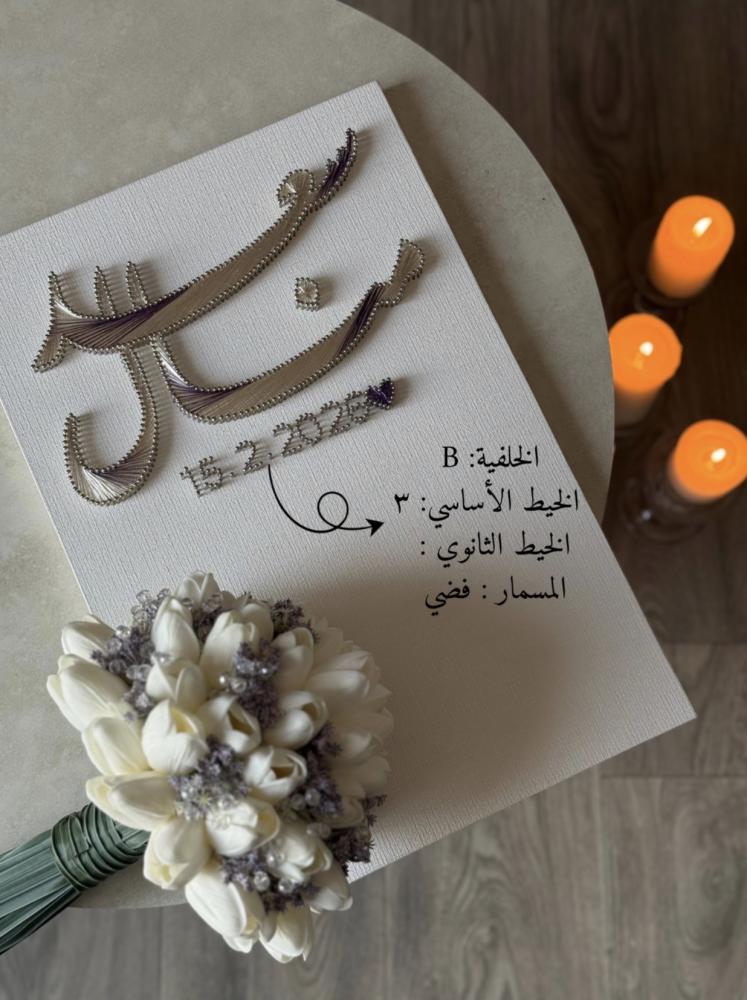 15.2.2026
الخلفية: B
الخيط الأساسي: ٣
الخيط الثانوي :
المسمار : فضي